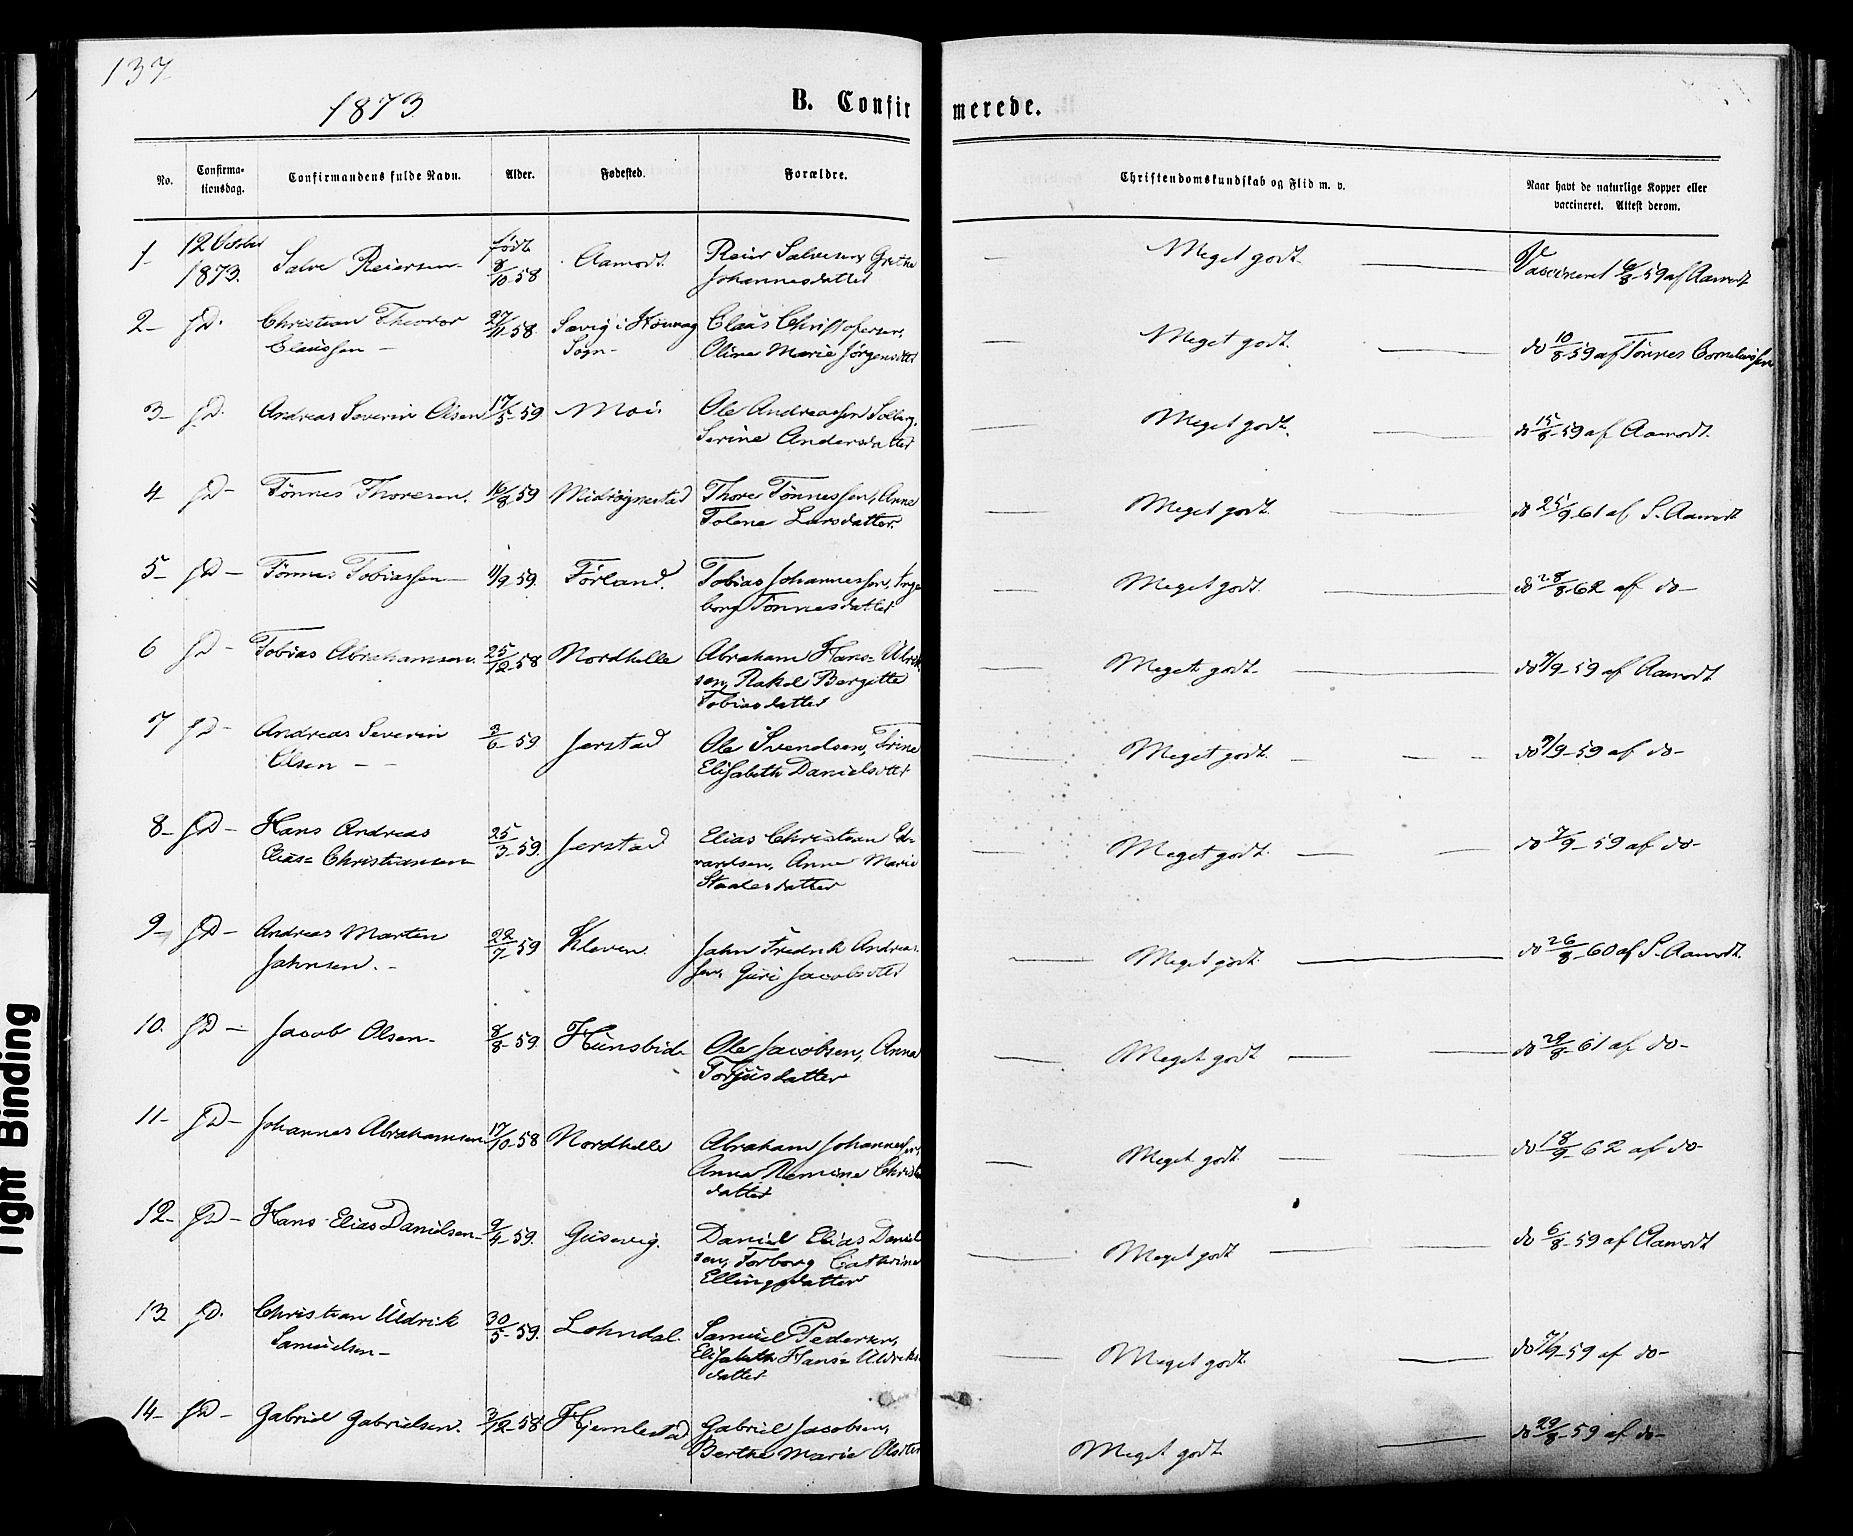 137
1873
B. Confirmerede.
No.
Confirma-
tionsdag.
Confirmandens fulde Navn.
Alder.
Fødested.
Forældre.
Christendomskundskab og Flid m. v.
Naar havt de naturlige Kopper eller
vaccineret. Attest derom.
1- 12 1873. Salve Reiersen- født 8/10 58 Aamodt. Reier Salvesen, Grethe Johannesdatter — Meget godt. — Vaccineret 6/8-59 af Aamodt
2- D. Christian Theodor Claussen — 27/11-58. Sævig i Sogn- Claus Christofersen, Oline Marie Jørgensdtter — Meget godt. — do 10/8-59 af Tønnes Corneliussen
3- D. Andreas Severin Olsen 17/5-59 Moi. Ole Andreassen Solberg, Serine Andersdatter — Meget godt. — do 15/8-59 af Aamodt.
4- D- Tönnes Thoresen. 16/8-59 Midtøgnestad Thore Tönnessen, Anne Tolene Larsdatter — Meget godt. — do 25/9-61 af S. Aamodt
5- D- Tönnes Tobiassen- 11/9 59. Førland. Tobias Johannessen, Ingeborg Tönnesdatter — Meget godt. — do 28/8-62 af do-
6 D- Tobias Abrahamsen. 25/12-58 Nordhelle Abraham Hans= Ulriksen, Rakel Bergitte Tobiasdatter — Meget godt. — do 7/9-59 af Aamodt
7 D- Andreas Severin Olsen - - 3/6-59 Jerstad Ole Svendsen, Trine Elisabeth Danielsdtter — Meget godt. — do 9/9-59 af do-
8- D- Hans Andreas Elias= Christiansen 25/3-59. Jerstad Elias Christian Edvardsen, Anne Marie Staalesdatter — Meget godt. — do 7/9-59 af do-
9- D- Andreas Marten Jahnsen. - 22/7-59 Kleven. Jahn Fredrik Andreassen, Guri Jacobsdtter — Meget godt. — do 26/8-60 af S. Aamodt.
10. D- Jacob Olsen- 8/8-59. Hunsbide Ole Jacobsen, Anna Torjusdatter — Meget godt — do 29/8-61 af do-
11- D- Johannes Abrahamsen 17/10-58 Nordhelle Abraham Johannessen, Anna Remine datter — Meget godt. — do 18/9-62 af do-
12- D- Hans Elias Danielsen- 9/4-59. Gusevig. Daniel Elias Danielsen, Torborg Cathrine Ellingsdatter — Meget godt — do 6/8-59 af Aamodt
13 D. Christian Uldrik Samuelsen- 30/5-59. Lohndal. Samuel Pedersen, Elisabeth Hans= Uldriksdatter — Meget godt. — do 7/9-59 af do-
14- D- Gabriel Gabrielsen. 3/12-58 Hjemlestad Gabriel Jacobsen, Berthe Marie Olsdtter Meget godt. — do 29/8-59 af do-
Tight Binding